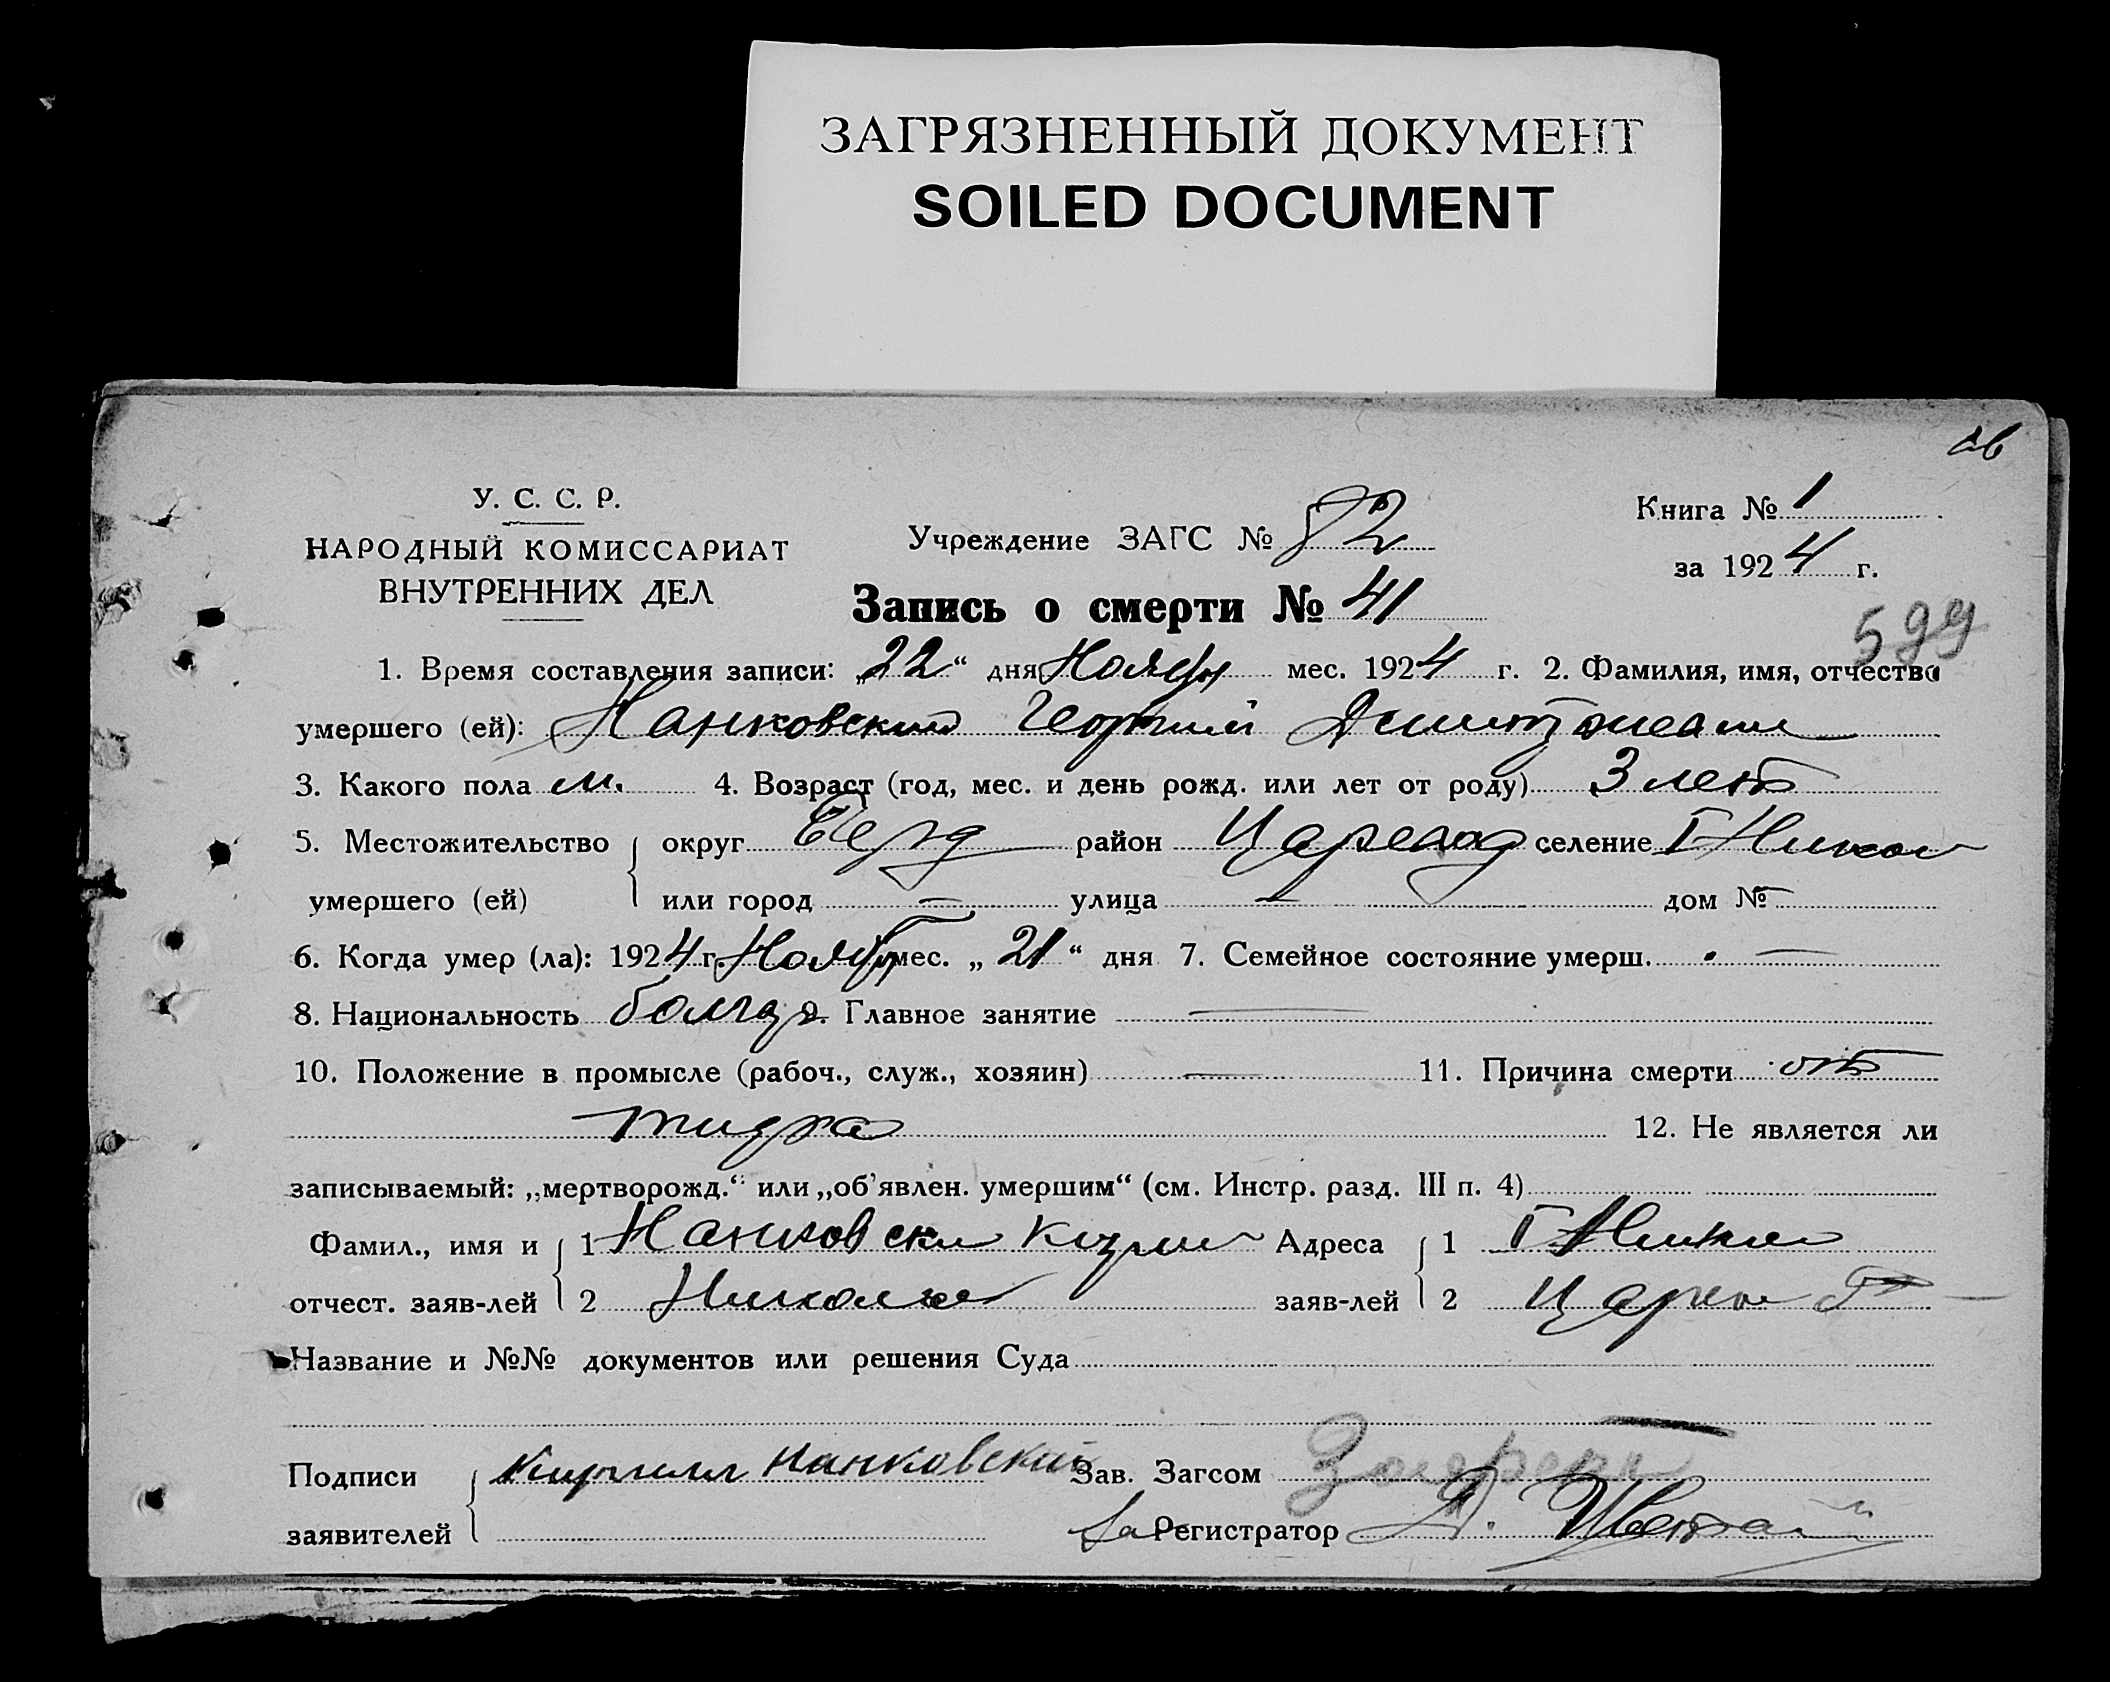 ЗАГРЯЗНЕННЫЙ ДОКУМЕНТ
SOILED DOCUMENT
У. С. С. Р.
НАРОДНЫЙ КОМИССАРИАТ
ВНУТРЕННИХ ДЕЛ
Учреждение ЗАГС № 82
Запись о смерти № 41
Книга № 1
за 1924 г.
599
1. Время составления записи: „22“ дня Ноябр мес. 1924 г. 2. Фамилия, имя, отчество
умершего (ей): Нанковский Георгий
3. Какого пола м. 4. Возраст (год, мес. и день рожд. или лет от роду) 3 лет
5. Местожительство округ Берд район селение
умершего (ей) или город — улица — дом № —
6. Когда умер (ла): 1924 г. Ноябр мес. „21“ дня 7. Семейное состояние умерш. —
8. Национальность болгар 9. Главное занятие —
10. Положение в промысле (рабоч., служ., хозяин) — 11. Причина смерти от
12. Не является ли
записываемый: „мертворожд.“ или „об'явлен. умершим“ (см. Инстр. разд. III п. 4)
Фамил., имя и 1 Нанковски Адреса 1
отчест. заяв-лей 2 заяв-лей 2
Название и №№ документов или решения Суда
Подписи Кирилл Нанковский Зав. Загсом
заявителей За Регистратор Д.